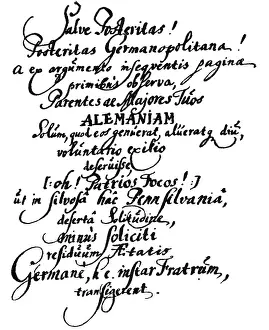 Salve Posteritas!
Posteritas Germanopolitana!
a ex argumento insequentis pagina
primitus observa,
Parentes ac Majores Tuos
ALEMANIAM
Solum, quod eos genuerat, alueratq diu,
voluntario exilio
deseruisse,
[:oh! Patrios Focos! :]
ut in silvosa hac Pennsilvania,
deserta Solitudine,
minus soliciti
residuum Ætatis
Germane, h.e. instar Fratrum,
transigerent.